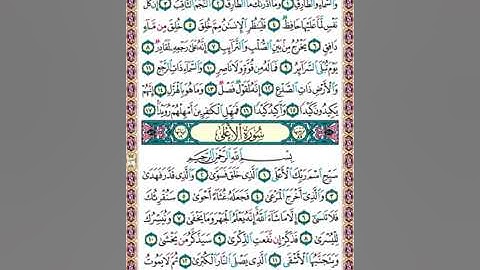 وَالسَّمَاءِ وَالطَّارِقِ ١ وَمَا أَدْرَاكَ مَا الطَّارِقُ ٢ النَّجْمُ الثَّاقِبُ ٣ إِن كُلُّ
نَفْسٍ لَّمَّا عَلَيْهَا حَافِظٌ ٤ فَلْيَنظُرِ الْإِنسَانُ مِمَّ خُلِقَ ٥ خُلِقَ مِن مَّاءٍ
دَافِقٍ ٦ يَخْرُجُ مِن بَيْنِ الصُّلْبِ وَالتَّرَائِبِ ٧ إِنَّهُ عَلَى رَجْعِهِ لَقَادِرٌ ٨
يَوْمَ تُبْلَى السَّرَائِرُ ٩ فَمَا لَهُ مِن قُوَّةٍ وَلَا نَاصِرٍ ١٠ وَالسَّمَاءِ ذَاتِ الرَّجْعِ ١١
وَالْأَرْضِ ذَاتِ الصَّدْعِ ١٢ إِنَّهُ لَقَوْلٌ فَصْلٌ ١٣ وَمَا هُوَ بِالْهَزْلِ ١٤ إِنَّهُمْ
يَكِيدُونَ كَيْدًا ١٥ وَأَكِيدُ كَيْدًا ١٦ فَمَهِّلِ الْكَافِرِينَ أَمْهِلْهُمْ رُوَيْدًا ١٧
سُورَةُ الْأَعْلَى
بِسْمِ اللَّهِ الرَّحْمَٰنِ الرَّحِيمِ
سَبِّحِ اسْمَ رَبِّكَ الْأَعْلَى ١ الَّذِي خَلَقَ فَسَوَّى ٢ وَالَّذِي قَدَّرَ فَهَدَى
٣ وَالَّذِي أَخْرَجَ الْمَرْعَى ٤ فَجَعَلَهُ غُثَاءً أَحْوَى ٥ سَنُقْرِئُكَ
فَلَا تَنسَى ٦ إِلَّا مَا شَاءَ اللَّهُ إِنَّهُ يَعْلَمُ الْجَهْرَ وَمَا يَخْفَى ٧ وَنُيَسِّرُكَ
لِلْيُسْرَى ٨ فَذَكِّرْ إِن نَّفَعَتِ الذِّكْرَى ٩ سَيَذَّكَّرُ مَن يَخْشَى ١٠
وَيَتَجَنَّبُهَا الْأَشْقَى ١١ الَّذِي يَصْلَى النَّارَ الْكُبْرَى ١٢ ثُمَّ لَا يَمُوتُ